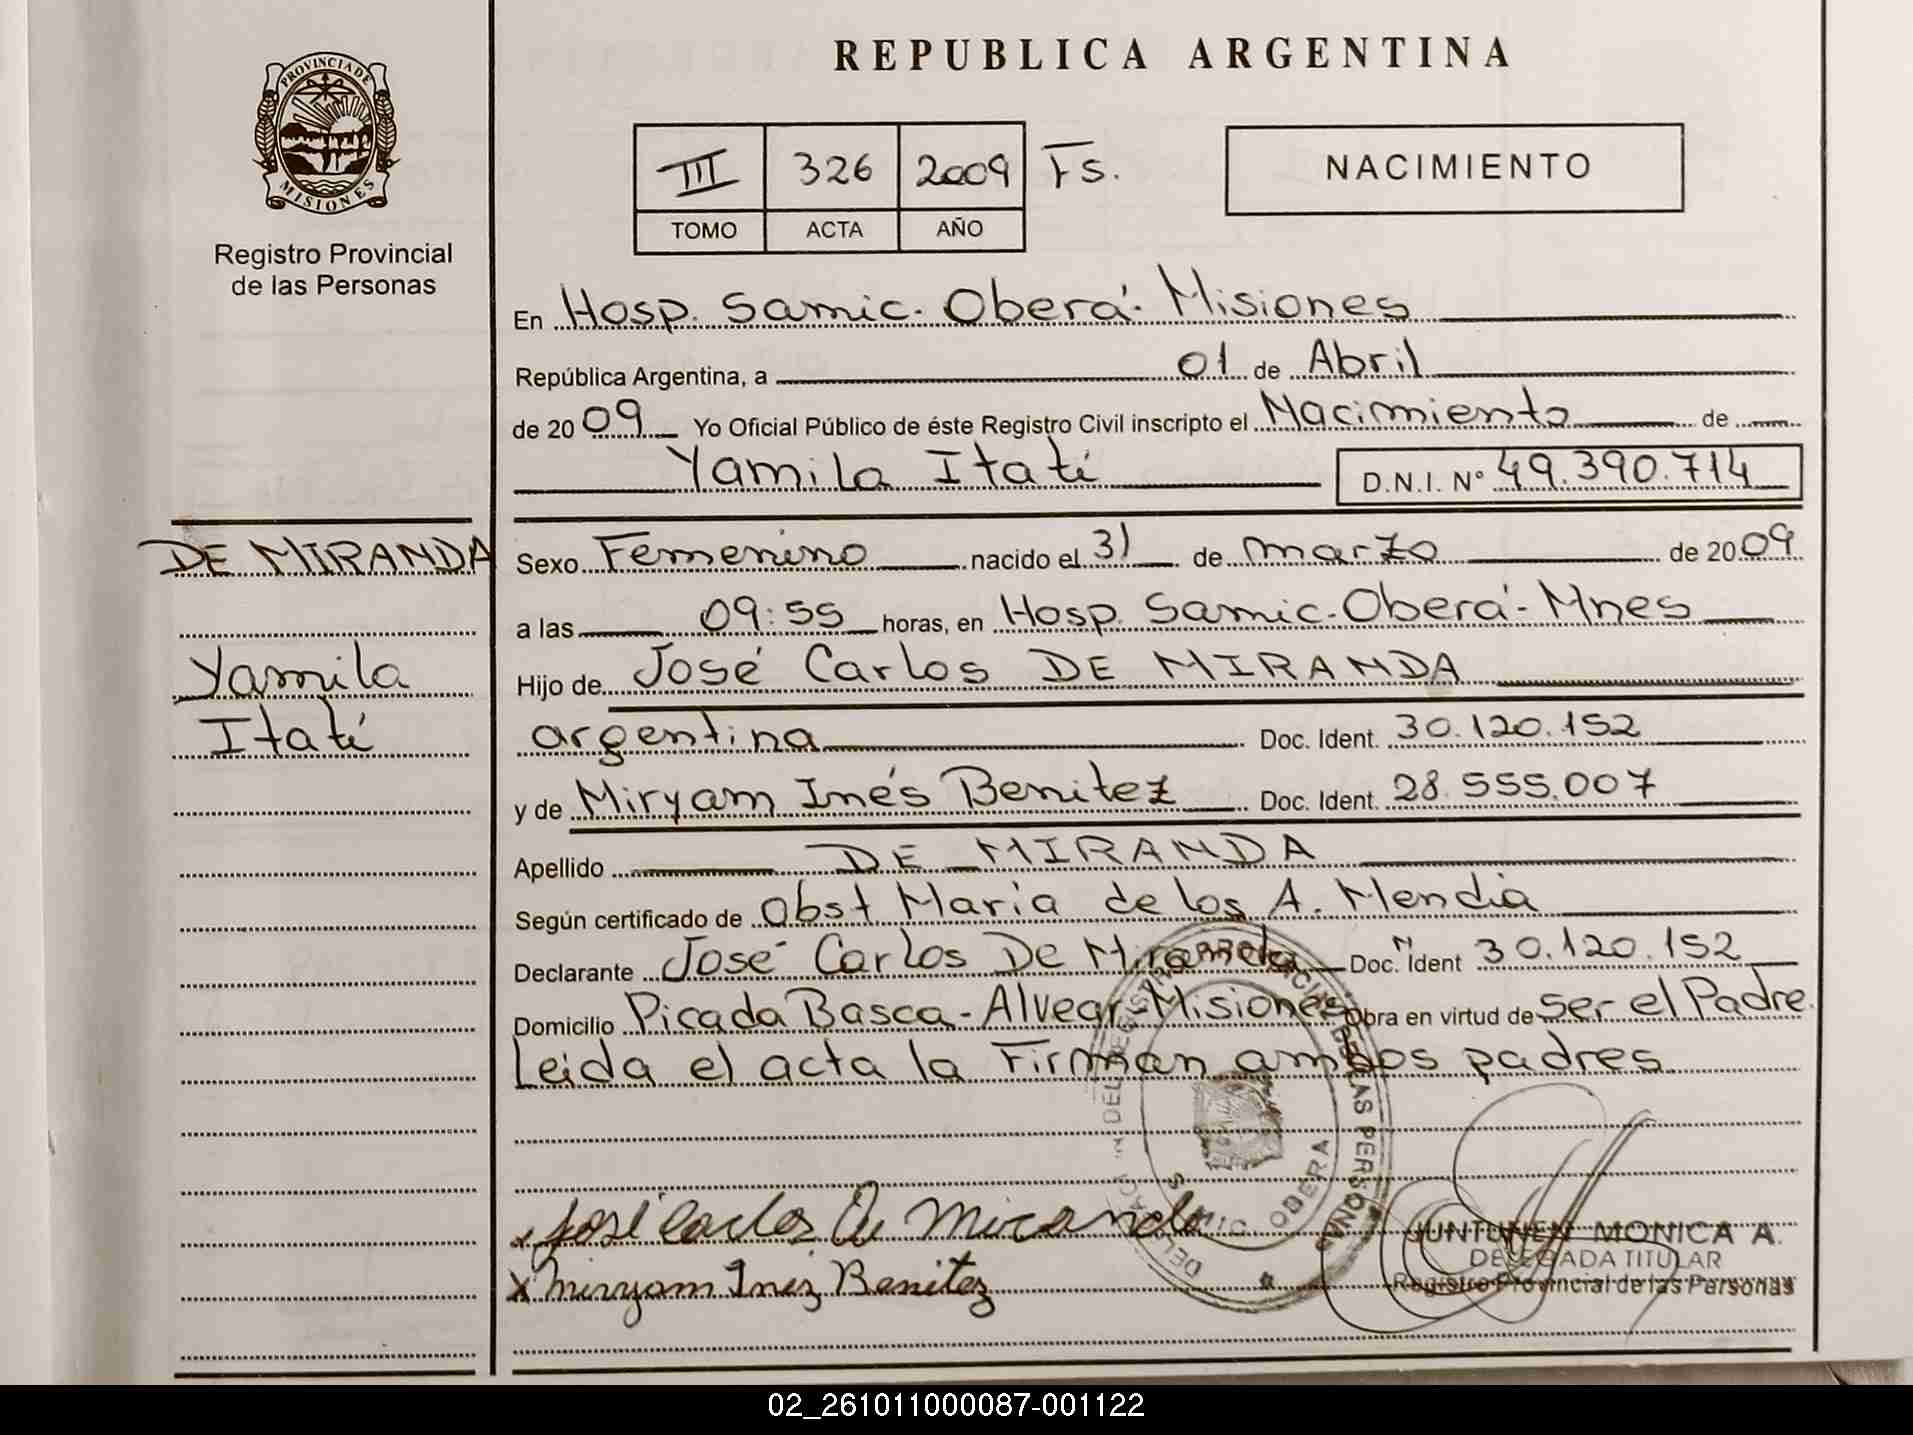 REPUBLICA ARGENTINA
PROVINCIA DE MISIONES
Registro Provincial
de las Personas
III 326 2009 Fs.
TOMO ACTA AÑO
NACIMIENTO
En Hosp. Samic. Oberá - Misiones
República Argentina, a 01 de Abril
de 2009 Yo Oficial Público de éste Registro Civil inscripto el Nacimiento de
Yamila Itatí D.N.I. Nº 49.390.714
DE MIRANDA
Yamila
Itatí
Sexo Femenino nacido el 31 de marzo de 2009
a las 09:55 horas, en Hosp. Samic. Oberá - Mnes
Hijo de José Carlos DE MIRANDA
argentina Doc. Ident. 30.120.152
y de Miryam Inés Benitez Doc. Ident. 28.555.007
Apellido DE MIRANDA
Según certificado de Obst María de los A. Mendia
Declarante José Carlos De Miranda Doc. Ident 30.120.152
Domicilio Picada Basca - Alvear - Misiones Obra en virtud de ser el Padre
Leida el acta la Firman ambos padres
x José Carlos De Miranda
x Miryam Inez Benitez
SAMIC OBERA
JUNTUNEN MONICA A.
DELEGADA TITULAR
Registro Provincial de las Personas
02_261011000087-001122